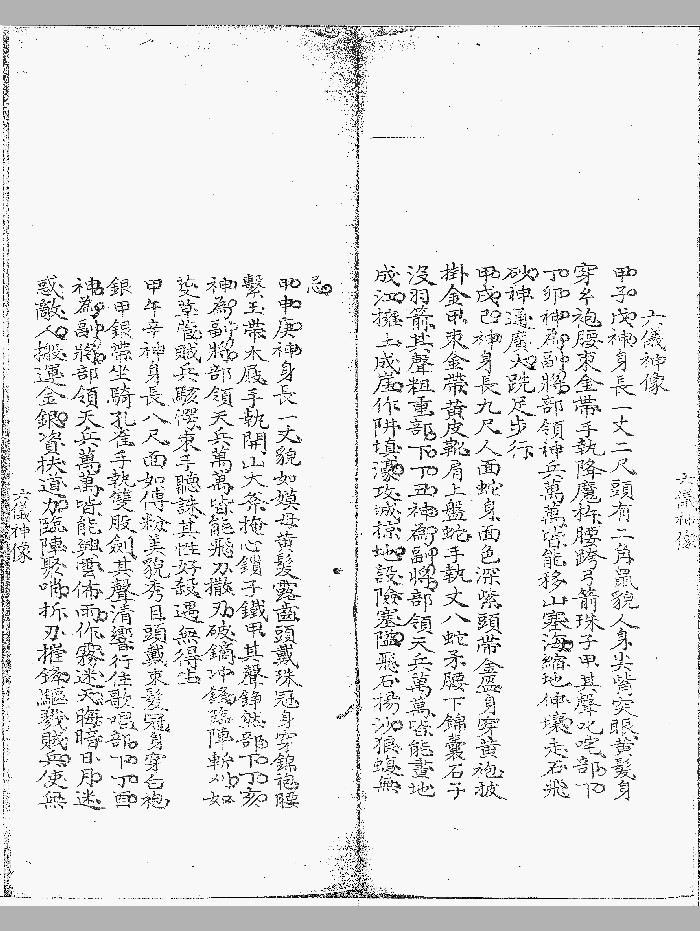 六儀神像
甲子戊神身長一丈二尺頭有二角鼠貌人身尖嘴突眼黄髮身
穿皂袍腰束金帶手執降魔杵腰跨弓箭珠子甲其聲叱咤部下
丁卯神為副將部領神兵萬萬皆能移山塞海縮地伸壤走石飛
砂神通廣大跣足步行
甲戌己神身長九尺人面蛇身面色深紫頭帶金盔身穿黄袍披
掛金甲束金帶黄皮靴肩上盤蛇手執丈八蛇矛腰下錦囊石子
沒羽箭其聲粗重部下丁丑神為副將部領天兵萬萬皆能畫地
成江擁土成崖作阱填濠攻城掠地設險塞隘飛石揚沙狼無
忌
甲申庚神身長一丈貌如嫫母黄髮露齒頭戴珠冠身穿錦袍腰
繫玉帶木屐手執開山大斧掩心鎖子鐵甲其聲錚然部下丁亥
神為副將部領天兵萬萬皆能飛刀撒刃破鏑冲鋒臨陣斬刈如
芟草菅賊兵駭愕束手聽誅其性好殺遇無得生
甲午辛神身長八尺面如傅粉美貌秀目頭戴束髮冠身穿白袍
銀甲銀帶坐騎孔雀手執雙股劍其聲清響行住歌唱部下丁酉
神為副將部領天兵萬萬皆能興雲佈雨作霧迷天晦暗日月迷
惑敵人搬運金銀資扶道力臨陣聚哨折刀摧鋒驅戮賊兵使無
六儀神像
六儀神像